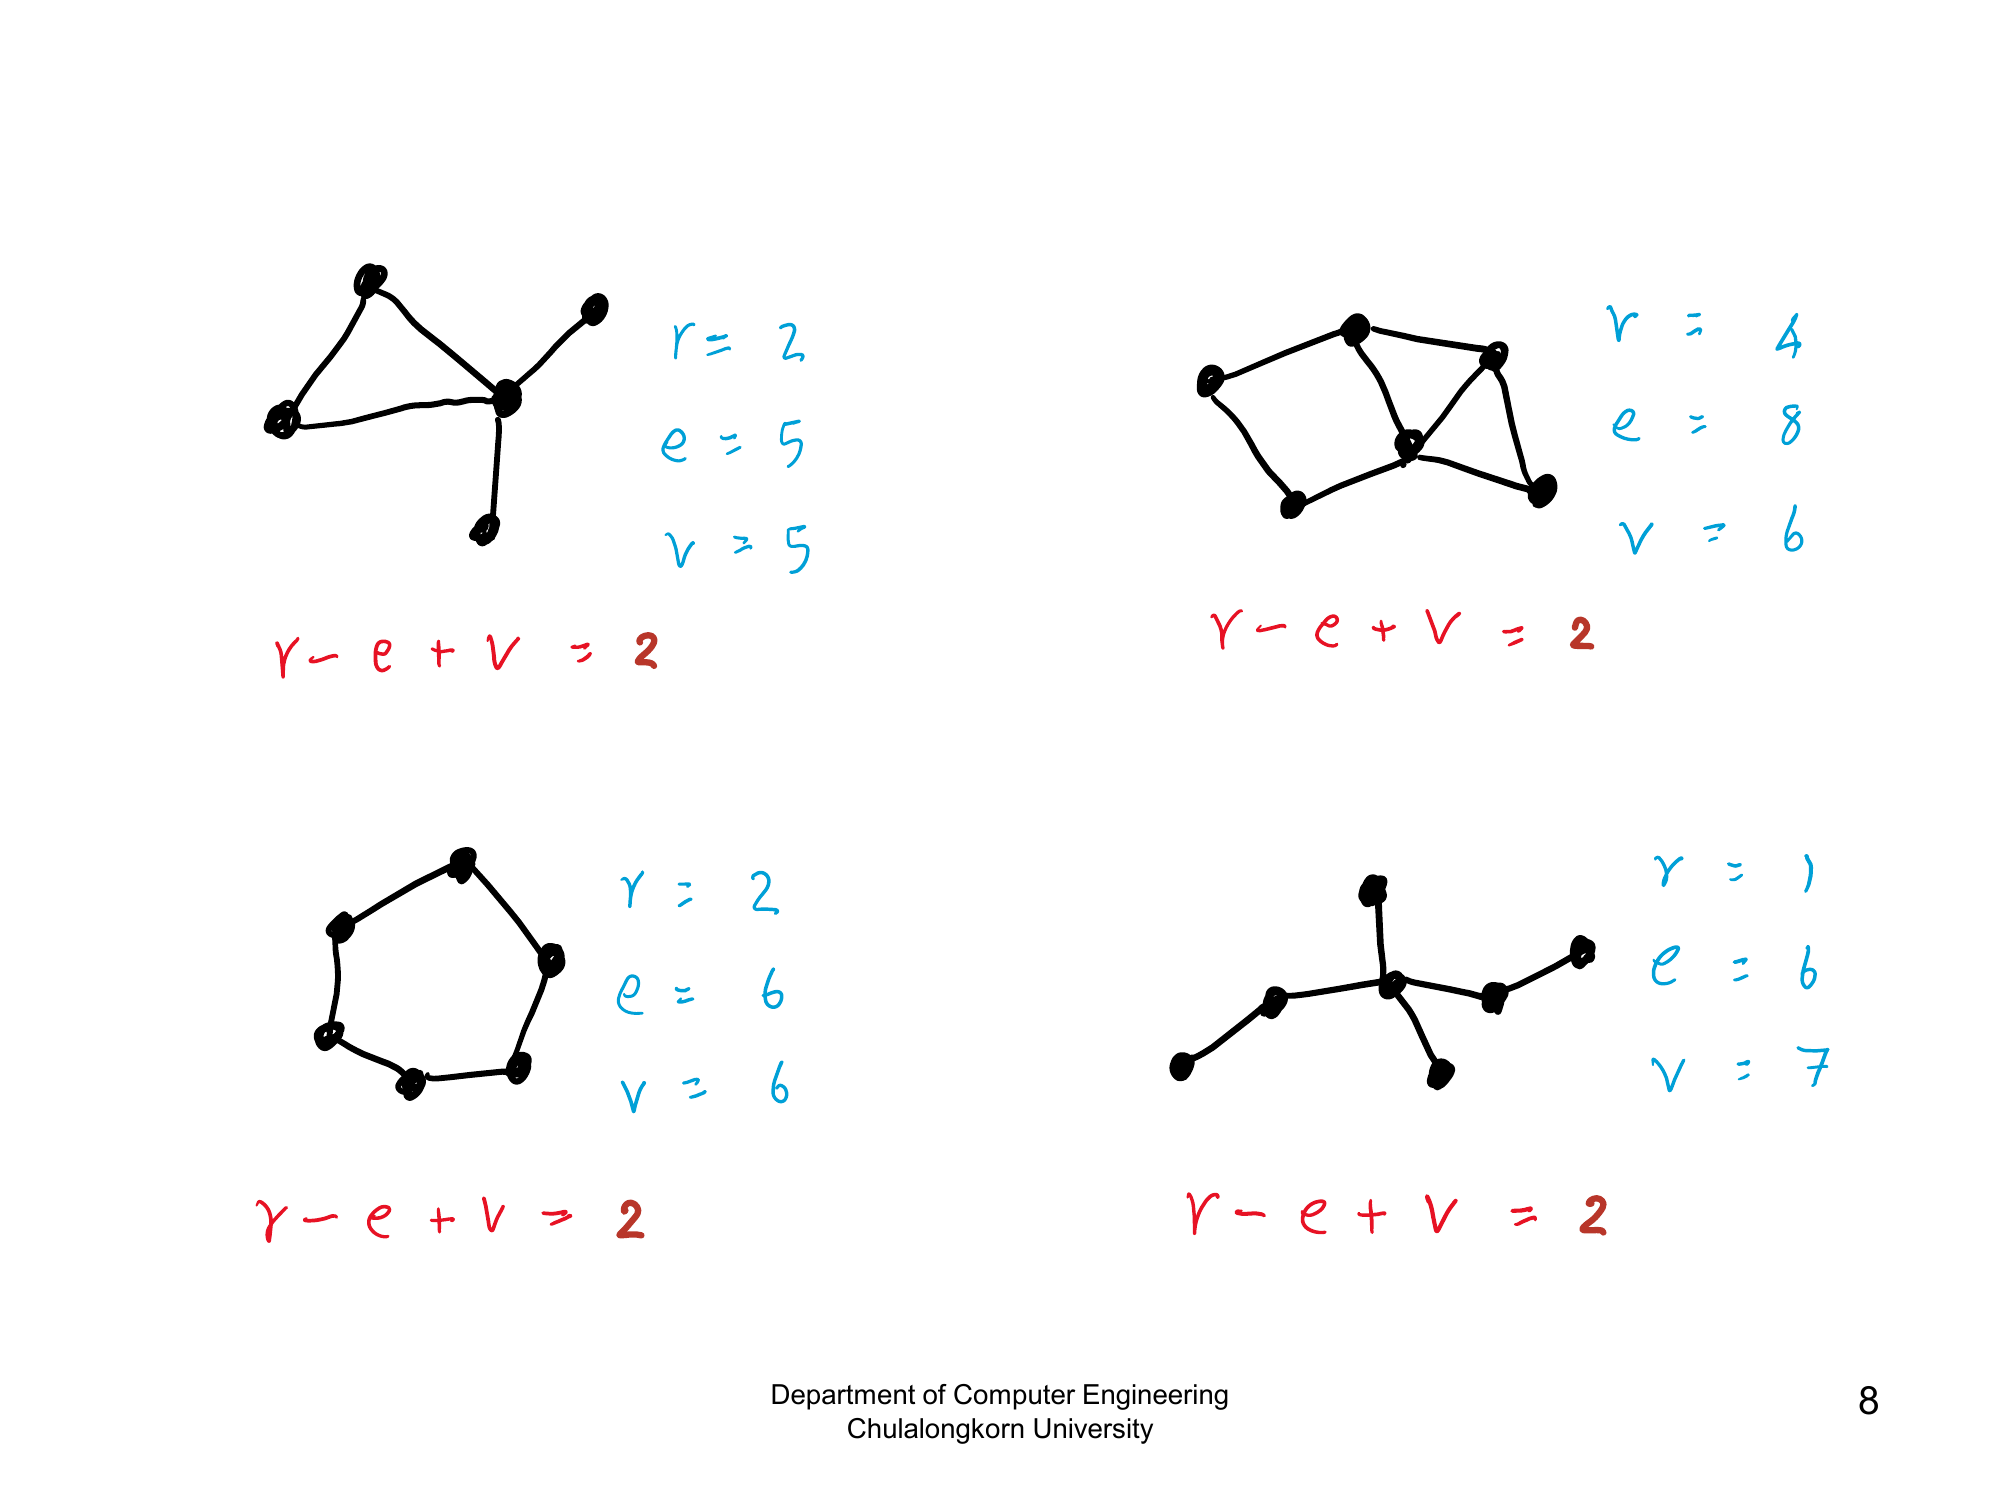 r = 2
e = 5
v = 5
r - e + v = 2
r = 4
e = 8
v = 6
r - e + v = 2
r = 2
e = 6
v = 6
r - e + v = 2
r = 1
e = 6
v = 7
r - e + v = 2
Department of Computer Engineering
Chulalongkorn University
8